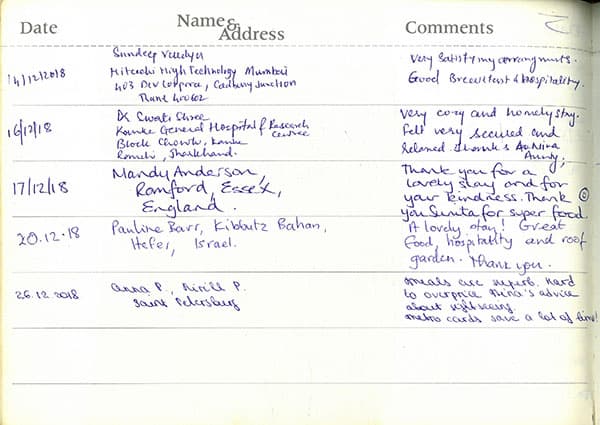 Date
Name & Address
Comments
14/12/2018
Sundeep
Hitachi High Technology Mumbai
403 Dev Corpora, Cadbury Junction
Thane 400602
Very satisfy my arrangments.
Good Breakfast & Hospitality.
16/12/18
Dr Swati Shree
Kanke General Hospital & Research Centre
Block Chowk, Kanke
Ranchi, Jharkhand.
Very cozy and homely stay.
Felt very secured and
relaxed. thanks Au Nina
Aunty;
17/12/18
Mandy Anderson,
Romford, Essex,
England.
Thank you for a
lovely stay and for
your kindness. Thank
you Sunita for super food.
20.12.18
Pauline Barr, Kibbutz Bahan,
Hefer, Israel.
A lovely stay! Great
food, hospitality and roof
garden. Thank you.
26.12.2018
Anna P., Kirill P.
Saint Petersburg
Meals are superb. Hard
to overprice Nina's advice
about sightseeing.
Metro cards save a lot of time!